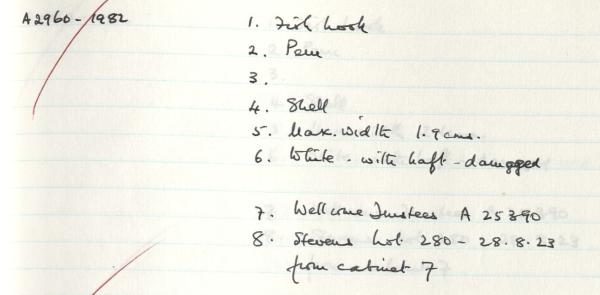 A2960-1982
1. Fish hook
2. Peru
3.
4. Shell
5. Max. width 1.9cms.
6. White - with haft - damaged
7. Wellcome Trustees A 25390
8. Stevens Lot 280 - 28.8.23
from cabinet 7